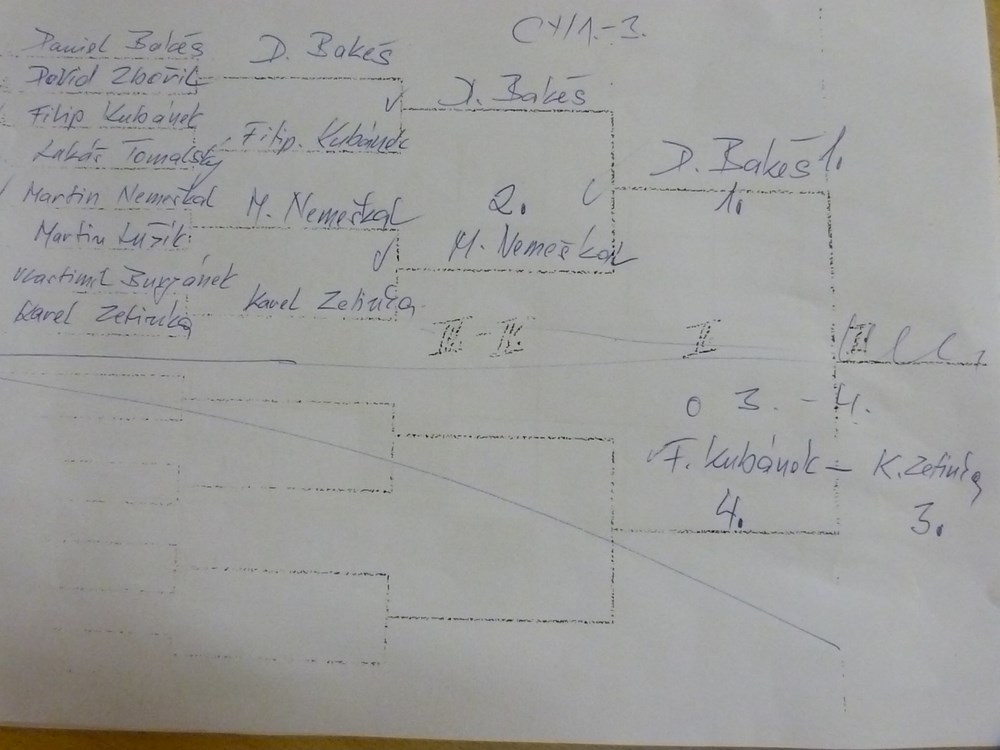 CH/1.-3.
Daniel Bakeš
David Zbořil
Filip Kubánek
Lukáš Tomalský
Martin Nemeškal
Martin Lužík
Vlastimil Burjánek
Karel Zetinka
D. Bakeš
Filip. Kubánek
M. Nemeškal
Karel Zetinka
D. Bakeš
2.
M. Nemeškal
D. Bakeš 1.
1.
III. - IV.
II
III
o 3. - 4.
F. Kubánek – K. Zetinka
4. 3.